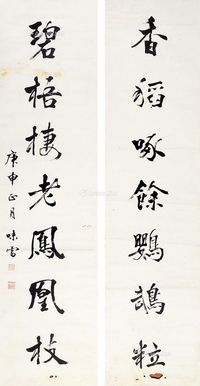 香稻啄餘鸚鵡粒
碧梧棲老鳳凰枝
庚申正月味雲